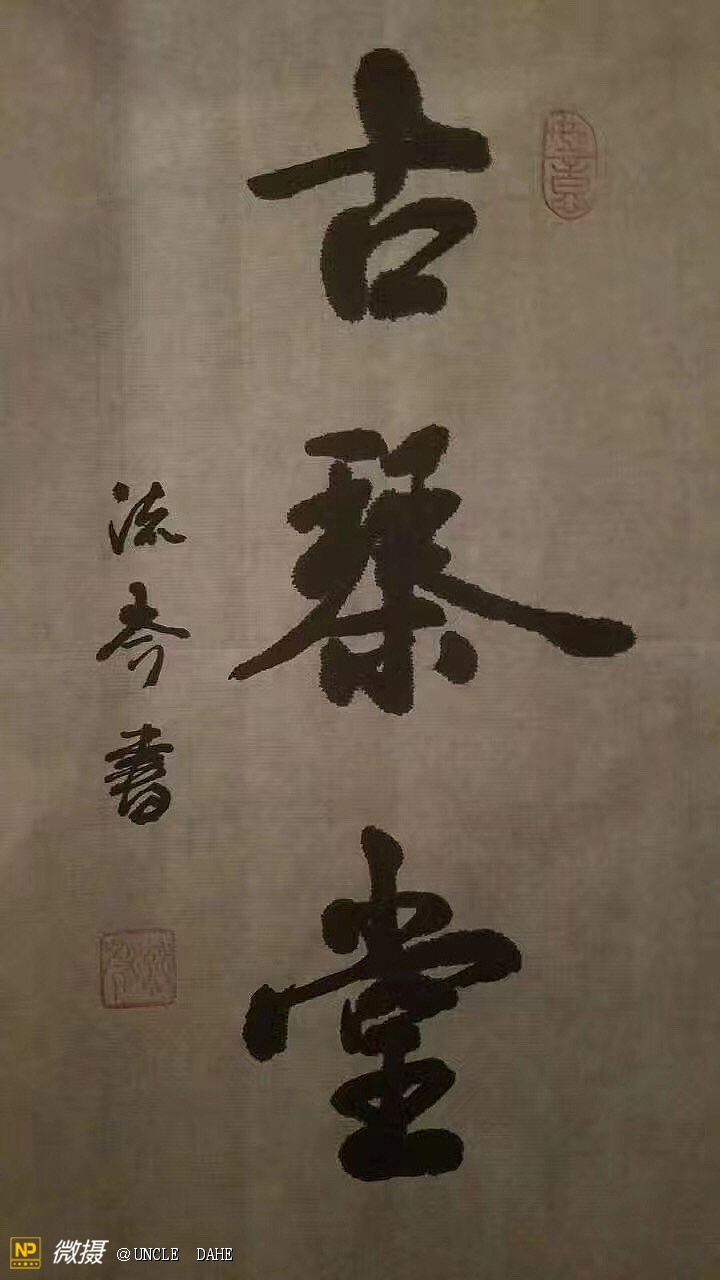 古琹堂
流書
NP 微摄 @UNCLE DAHE